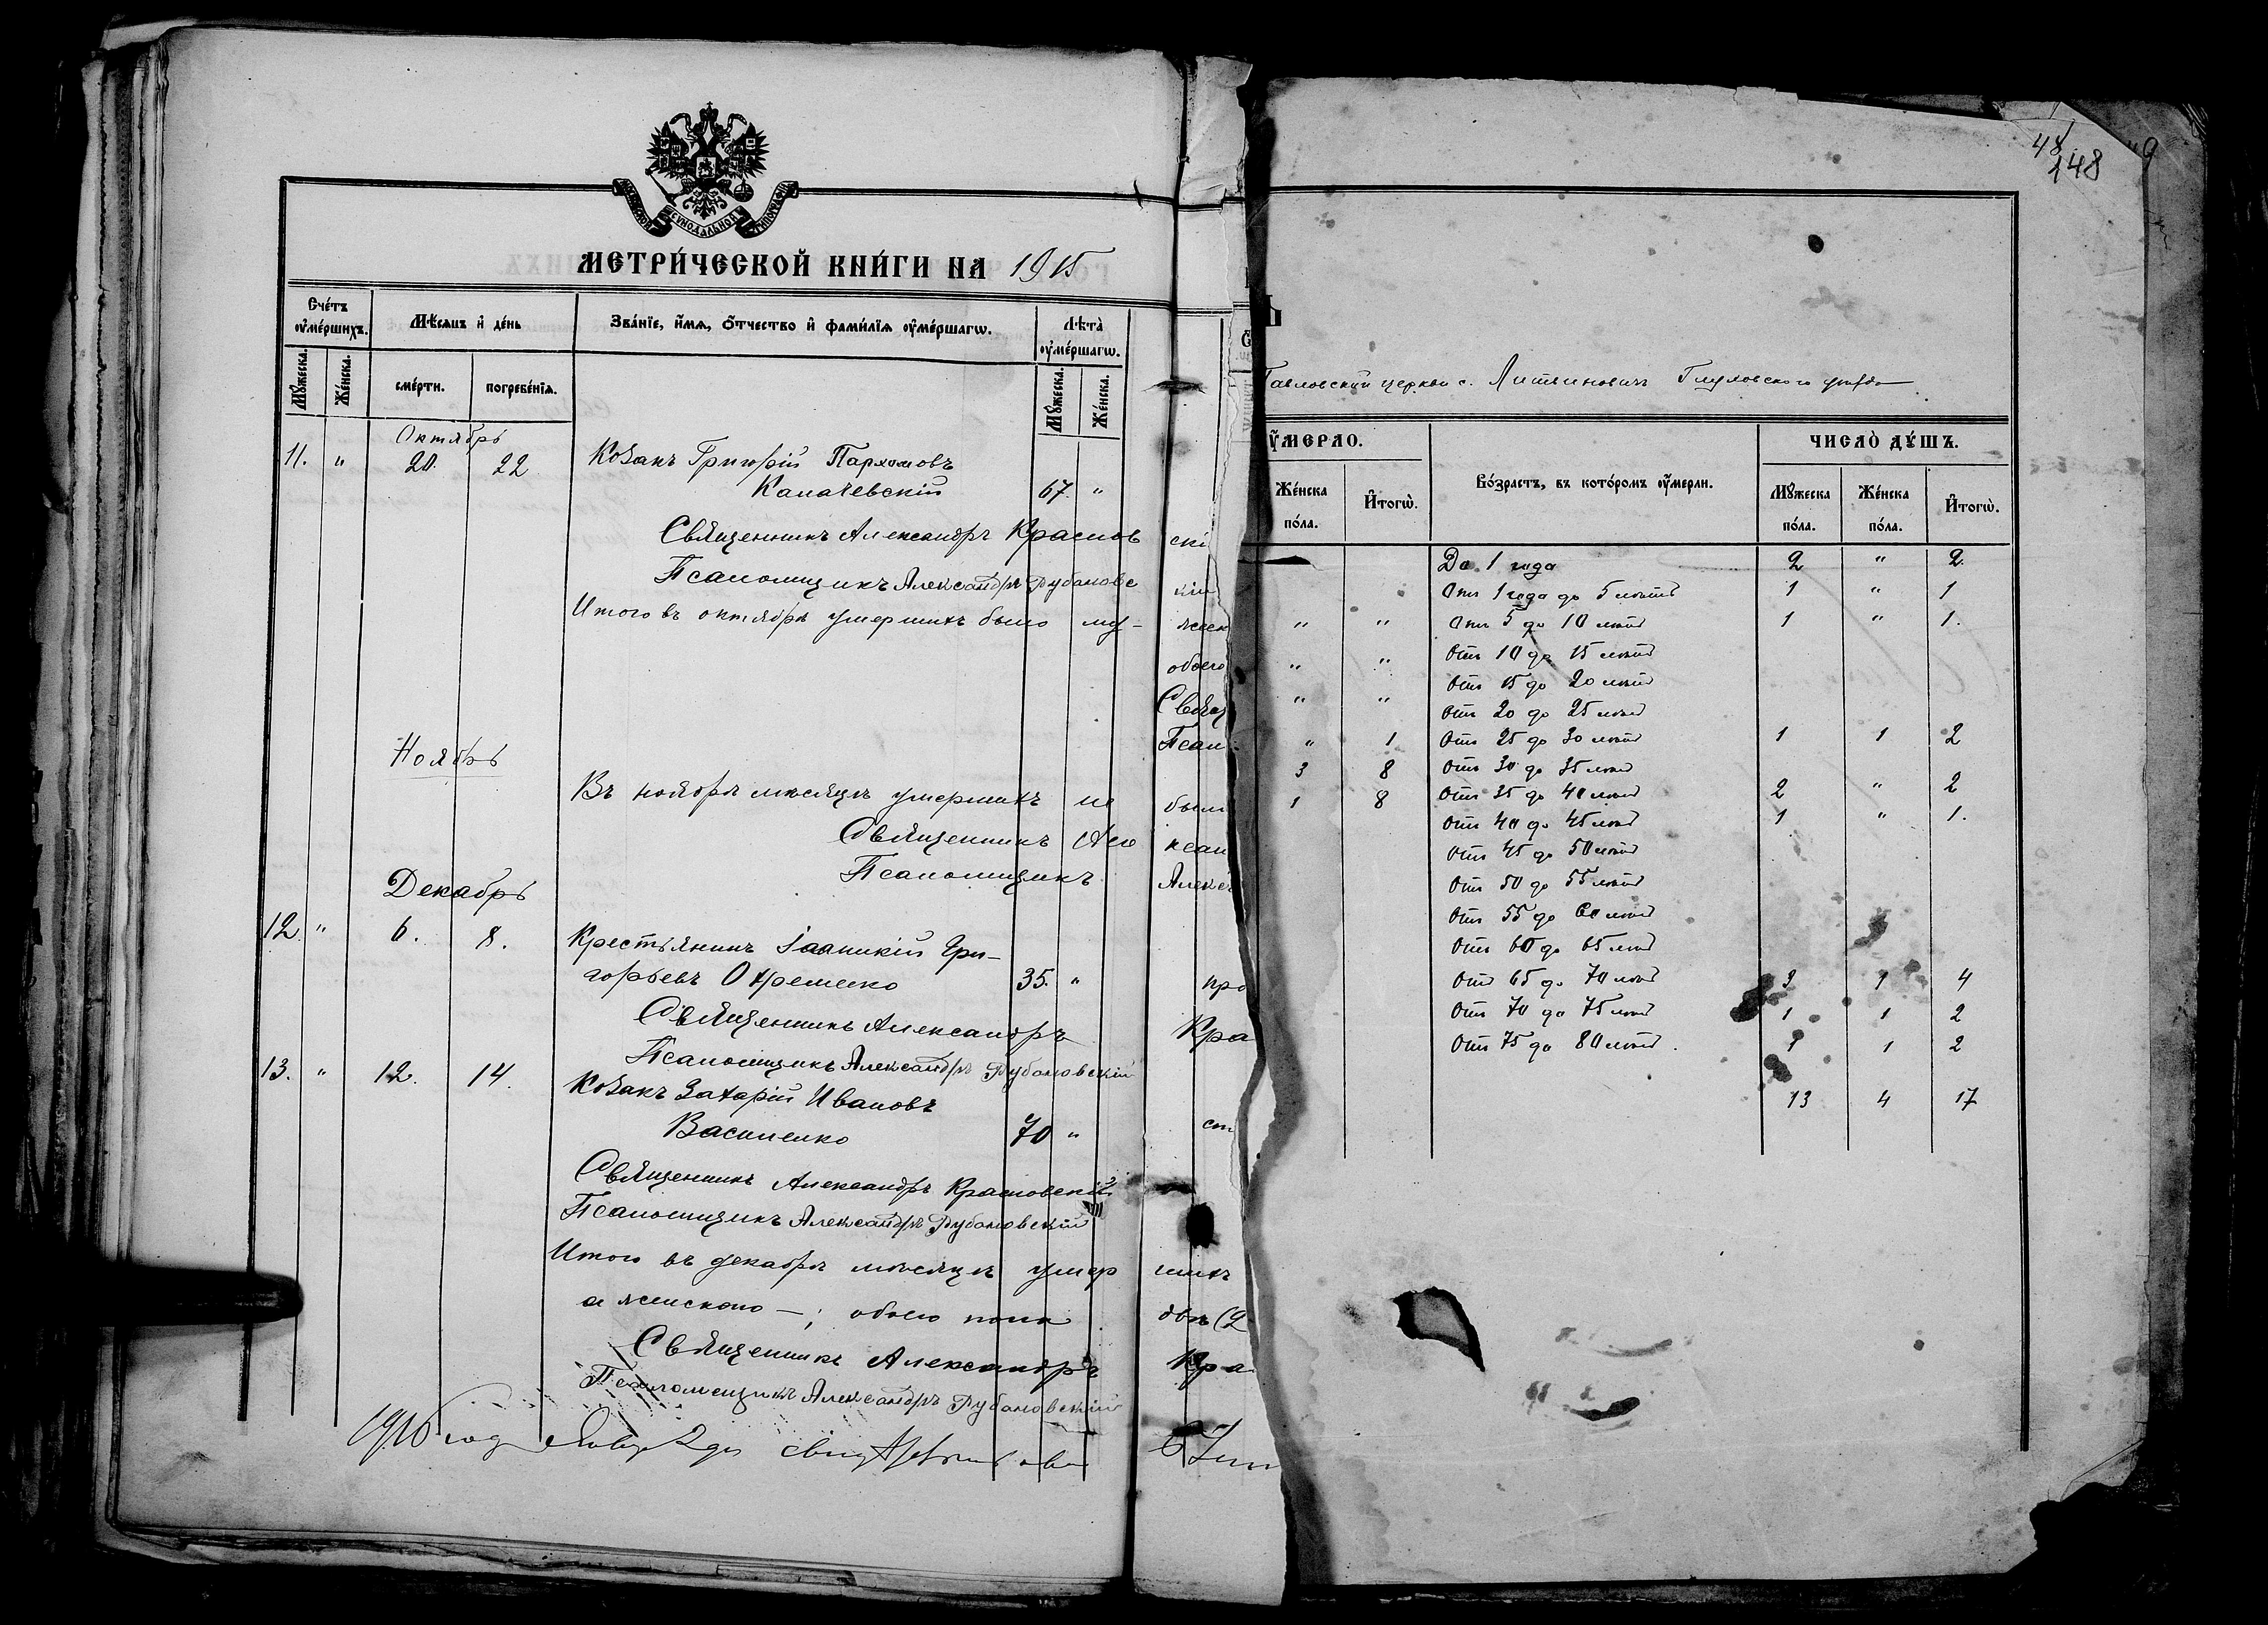 МОСКОВСКОЙ СѴНОДАЛЬНОЙ ТИПОГРАФІИ
МЕТРИ́ЧЕСКОЙ КНИ́ГИ НА 1915
Счётъ оу҆ме́ршихъ.
Мѣ́сяцъ и҆ де́нь
Зва́нїе, и҆́мя, ѻ҆́тчество и҆ фами́лїя оу҆ме́ршагѡ.
Лѣта̀ оу҆ме́ршагѡ.
Мꙋ́жеска.
Же́нска.
сме́рти.
погребе́нїя.
Мꙋ́жеска.
Же́нска.
Октябрь
11. " 20. 22 Козакъ Григорій Пархомовъ
Калачевскій 67. "
Священникъ Александръ Краснов скі
Псаломщикъ Александръ Рубановс кій
Итого въ октябрѣ умершихъ было му- жеск
обоего
Свящ
Псал
Ноябрь
Въ ноябрѣ мѣсяцѣ умершихъ не было
Священникъ Але ксан
Псаломщикъ Алекс
Декабрь
12. " 6. 8. Крестьянинъ Іоанникій Гри-
горьевъ Охременко 35. " про
Священникъ Александръ Кра
Псаломщикъ Александръ Рубановскій
13. " 12. 14. Козакъ Захарій Ивановъ
Василенко 70 " ст
Священникъ Александръ Красновскій
Псаломщикъ Александръ Рубановскій
Итого въ декабрѣ мѣсяцѣ умер шихъ
а женскаго —; обоего пола двѣ (2
Священникъ Александръ Кра
Псаломщикъ Александръ Рубановскій
1916 год
48
248
9
Павловской церкви с. Литвиновичъ Глуховского уѣзда
оу҆́МЕРЛО.
ЧИСЛО̀ ДꙊ́ШЪ.
Же́нска по́ла.
И҆тогѡ̀.
Во́зрастъ, въ кото́ромъ оу҆́мерли.
Мꙋ́жеска по́ла.
Же́нска по́ла.
И҆тогѡ̀.
До 1 года 2 " 2.
Отъ 1 года до 5 лѣтъ 1 " 1
" " Отъ 5 до 10 лѣтъ 1 " 1.
" " Отъ 10 до 15 лѣтъ
Отъ 15 до 20 лѣтъ
" " Отъ 20 до 25 лѣтъ
" 1 Отъ 25 до 30 лѣтъ 1 1 2
3 8 Отъ 30 до 35 лѣтъ
1 8 Отъ 35 до 40 лѣтъ 2 " 2
Отъ 40 до 45 лѣтъ 1 " 1.
Отъ 45 до 50 лѣтъ
Отъ 50 до 55 лѣтъ
Отъ 55 до 60 лѣтъ
Отъ 60 до 65 лѣтъ
Отъ 65 до 70 лѣтъ 3 1 4
Отъ 70 до 75 лѣтъ 1 1 2
Отъ 75 до 80 лѣтъ. 1 1 2
13 4 17